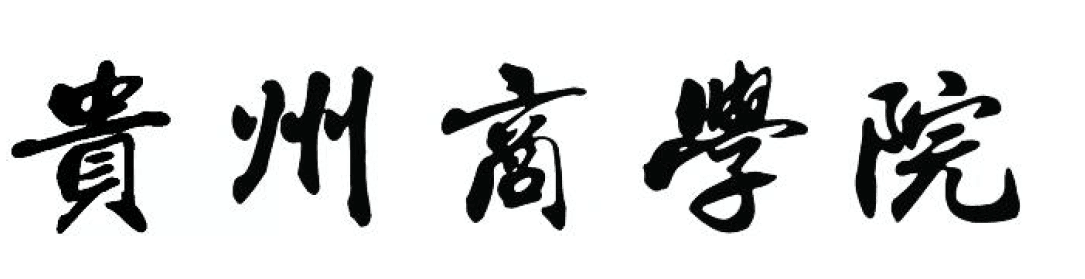 貴州商學院